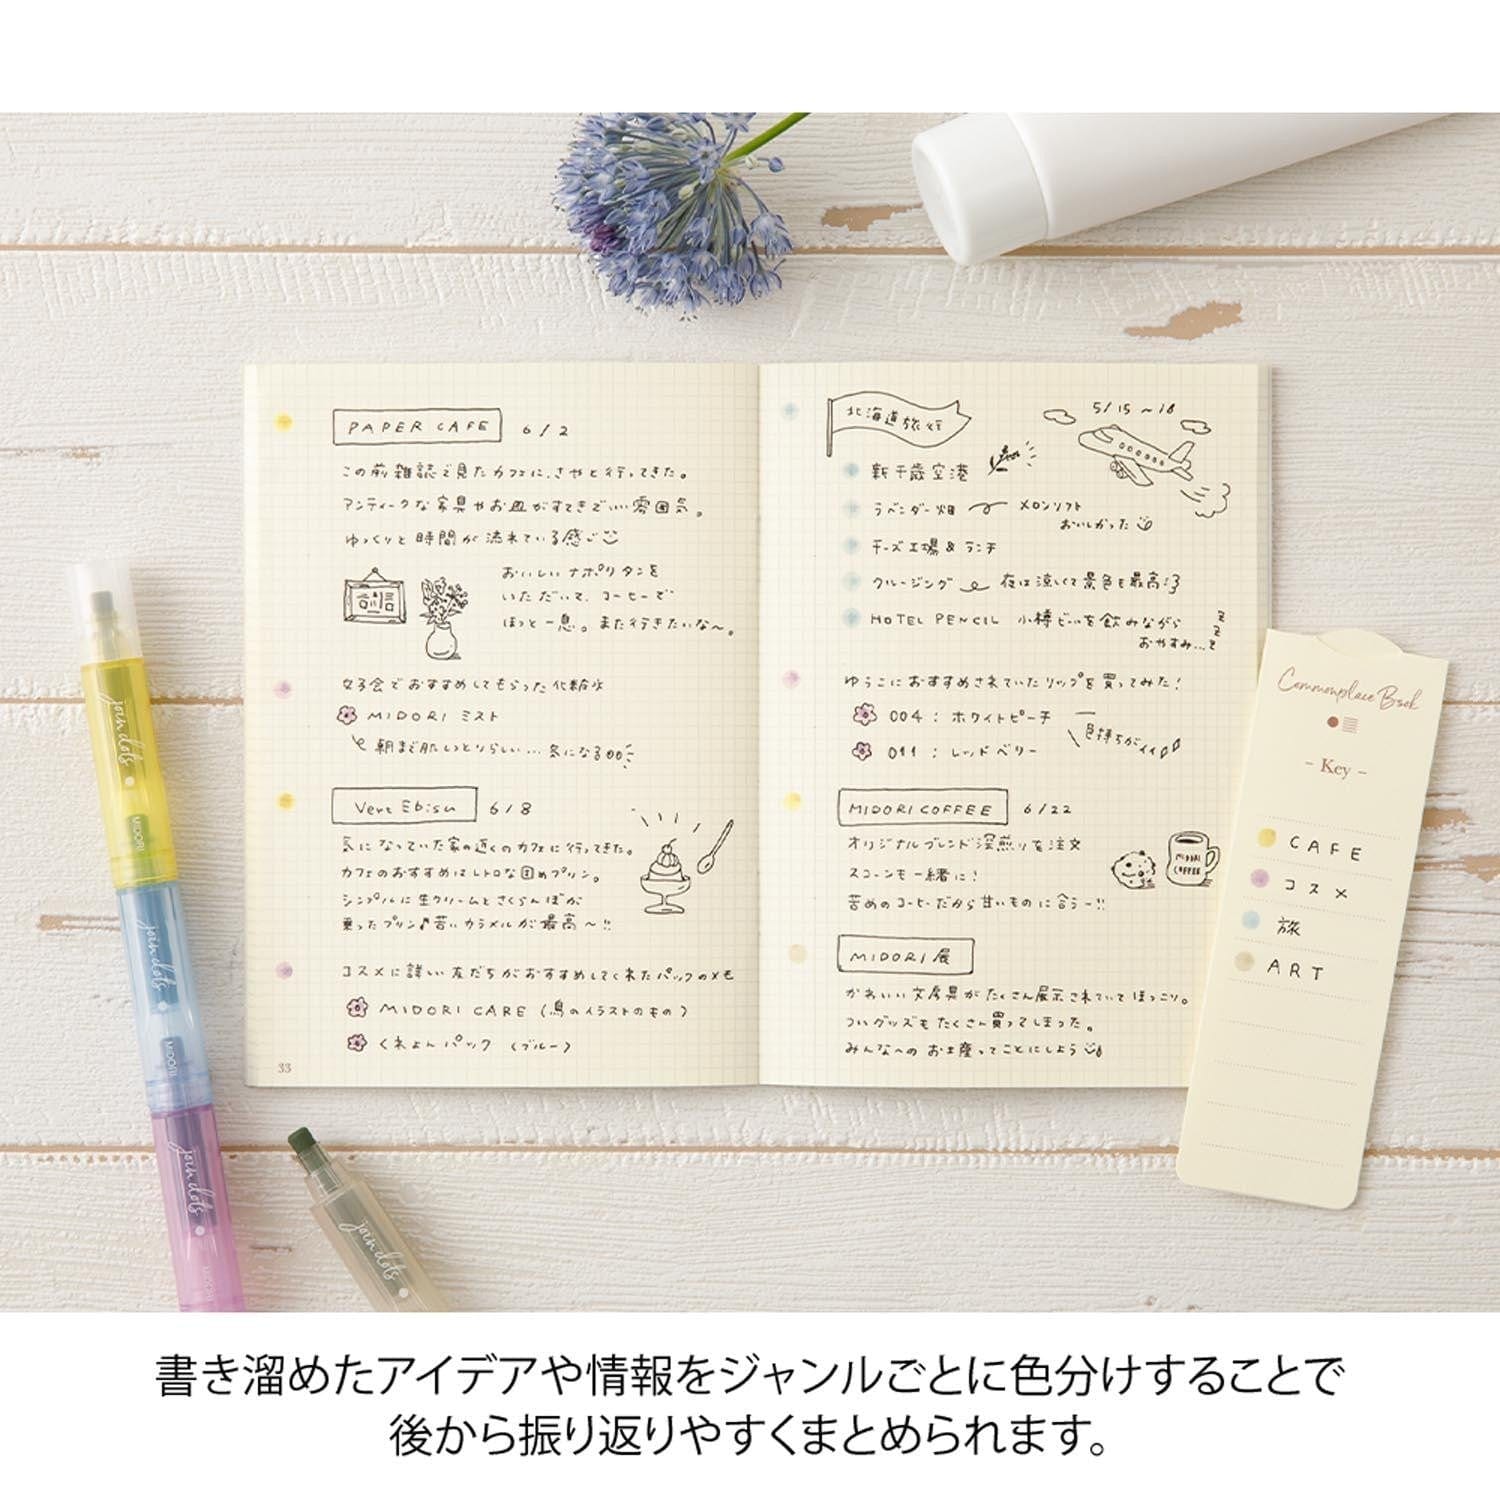 PAPER CAFE 6/2
この前雑誌で見たカフェに、さやと行ってきた。
アンティークな家具やお皿がすてきでいい雰囲気。
ゆっくりと時間が流れている感じ
おいしいナポリタンを
いただいて、コーヒーで
ほっと一息。また行きたいな〜。
女子会でおすすめしてもらった化粧水
MIDORI ミスト
朝まで肌しっとりらしい…気になる
Vert Ebisu 6/8
気になっていた家の近くのカフェに行ってきた。
カフェのおすすめはレトロな固めプリン。
シンプルに生クリームとさくらんぼが
乗ったプリン♪苦いカラメルが最高〜!!
コスメに詳しい友だちがおすすめしてくれたパックのメモ
MIDORI CARE (鳥のイラストのもの)
くれよんパック (ブルー)
33
北海道旅行 5/15〜18
新千歳空港
ラベンダー畑 メロンソフト
おいしかった
チーズ工場 & ランチ
クルージング 夜は涼しくて景色も最高!
HOTEL PENCIL 小樽ビールを飲みながら
おやすみ…zzzz
ゆうこにおすすめされていたリップを買ってみた!
004：ホワイトピーチ
011：レッドベリー
色持ちがイイ
MIDORI COFFEE 6/22
オリジナルブレンド深煎りを注文
スコーンも一緒に!
苦めのコーヒーだから甘いものに合う〜!!
MIDORI COFFEE
MIDORI 展
かわいい文房具がたくさん展示されていてほっこり。
ついグッズもたくさん買ってしまった。
みんなへのお土産ってことにしよう
Commonplace Book
- Key -
CAFE
コスメ
旅
ART
join dots
MIDORI
join dots
MIDORI
join dots
MIDORI
join dots
書き溜めたアイデアや情報をジャンルごとに色分けすることで
後から振り返りやすくまとめられます。